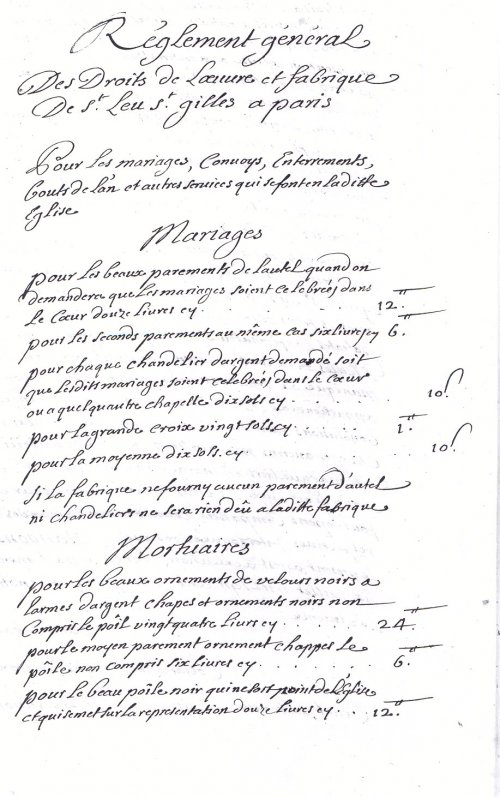 Réglement général
Des Droits de Lœuure et fabrique
De st. Leu st. gilles a paris
Pour les mariages, Conuoys, Enterrements,
bouts de l'an et autres seruices qui se font en laditte
Eglise
Mariages
pour les beaux parements de lautel quand on
demandera que Les mariages soient celebreés dans
Le Cœur douze liures cy . . . . 12.
pour les seconds parements au même cas six liures cy 6.
pour chaque chandelier dargent demandé soit
que lesdits mariages soient celebreés dans le Cœur
ou a quelquautre chapelle dix sols cy . . . . 10s
pour la grande Croix vingt sols cy . . . . 1.
pour la moyenne dix sols cy . . . . 10s
si la fabrique ne fourny aucun parement d'autel
ni chandeliers ne sera rien deû a laditte fabrique
Mortuaires
pour les beaux ornements de velours noirs a
larmes dargent chapes et ornements noirs non
Compris le poil vingt quatre liures cy . . . . 24.
pour le moyen parement ornement chappes le
poîle non compris six liures cy . . . . 6.
pour le beau poîle noir qui ne sort point de l'Eglise
et qui se met sur la representation douze liures cy . . . 12.